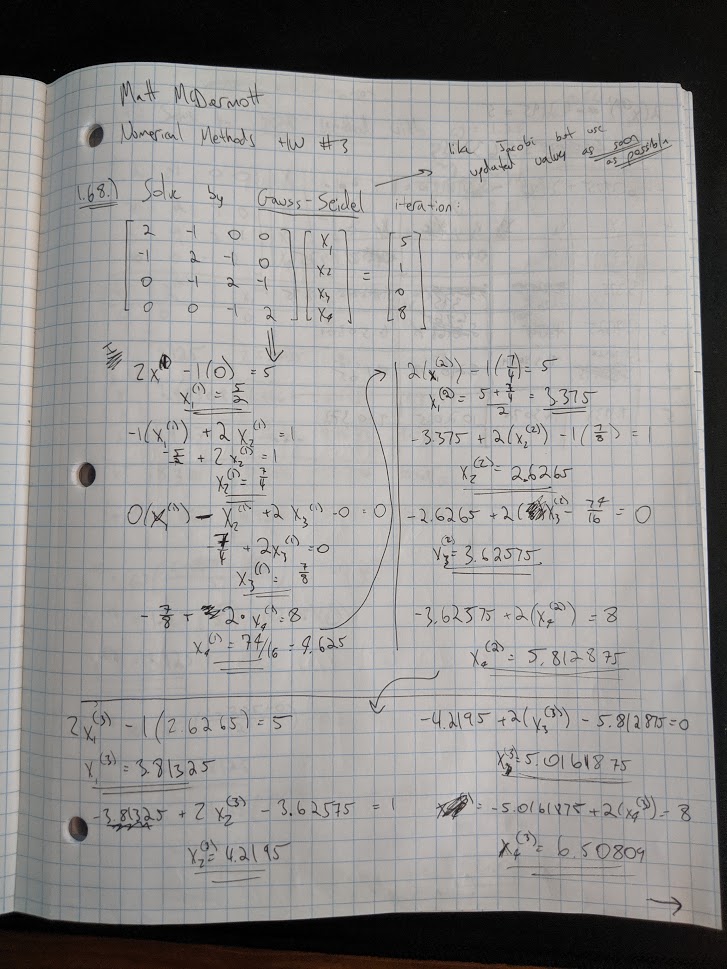 Matt McDermott
Numerical Methods HW #3
like Jacobi but use
updated values as soon
as possible
1.68.) Solve by Gauss-Seidel iteration:
[2 -1 0 0] [x₁] = [5]
[-1 2 -1 0] [x₂] [1]
[0 -1 2 -1] [x₃] [0]
[0 0 -1 2] [x₄] [8]
⇓
2x - 1(0) = 5
x₁⁽¹⁾ = 5/2
-1(x₁⁽¹⁾) + 2x₂⁽¹⁾ = 1
-5/2 + 2x₂⁽¹⁾ = 1
x₂⁽¹⁾ = 7/4
0(x₁⁽¹⁾) - x₂⁽¹⁾ + 2x₃⁽¹⁾ - 0 = 0
-7/4 + 2x₃⁽¹⁾ = 0
x₃⁽¹⁾ = 7/8
-7/8 + 2·x₄⁽¹⁾ = 8
x₄⁽¹⁾ = 74/16 = 4.625
2(x₁⁽²⁾) - 1(7/4) = 5
x₁⁽²⁾ = (5 + 7/4)/2 = 3.375
-3.375 + 2(x₂⁽²⁾) - 1(7/8) = 1
x₂⁽²⁾ = 2.6265
-2.6265 + 2(x₃⁽²⁾ - 74/16 = 0
x₃⁽²⁾ = 3.62575
-3.62575 + 2(x₄⁽²⁾) = 8
x₄⁽²⁾ = 5.812875
2x₁⁽³⁾ - 1(2.6265) = 5
x₁⁽³⁾ = 3.81325
-3.81325 + 2x₂⁽³⁾ - 3.62575 = 1
x₂⁽³⁾ = 4.2195
-4.2195 + 2(x₃⁽³⁾) - 5.812875 = 0
x₃⁽³⁾ = 5.0161875
= -5.0161875 + 2(x₄⁽³⁾) = 8
x₄⁽³⁾ = 6.50809
→